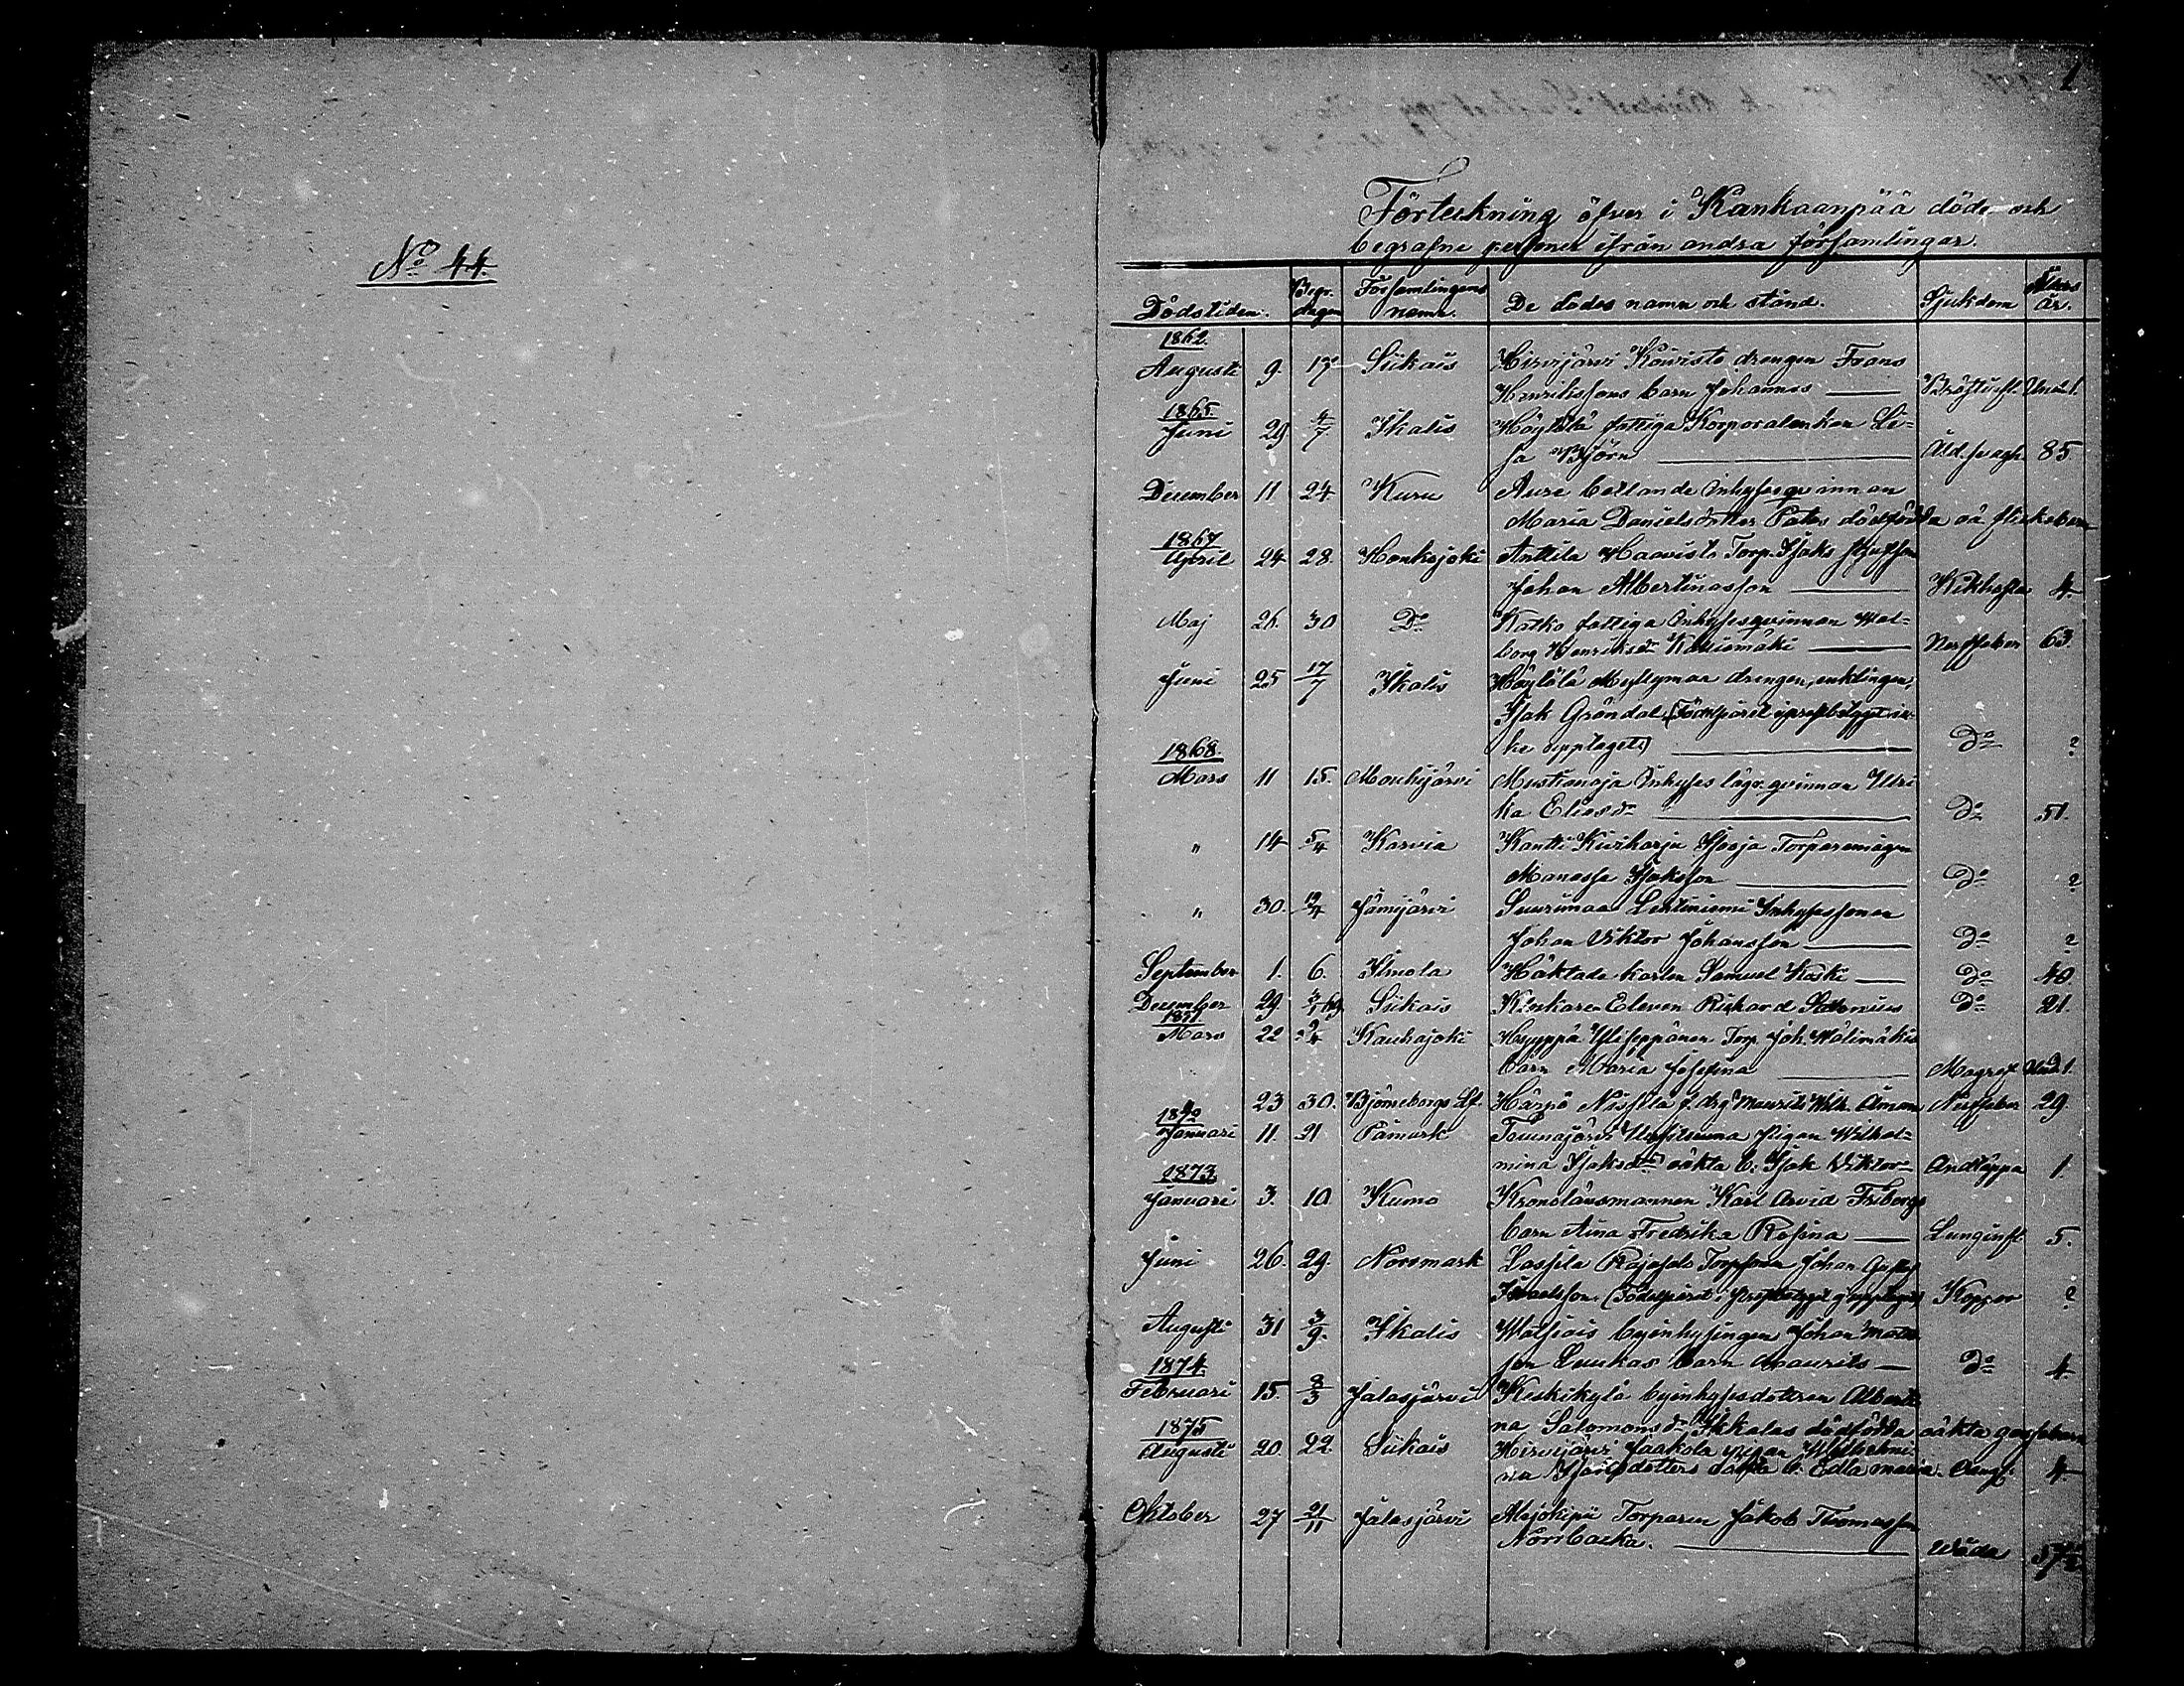 No 44.
1
Förteckning öfver i Kankaanpää döde och
begrafne personer ifrån andra församlingar.
Dödstiden. Begr. dagen Församlingens namn. De dödes namn och stånd. Sjukdom Ålders år.
1862.
Augusti 9. 17 Siikais Hirvijärvi Koivisto drengen Frans
Henrikssons barn Johannes Bröstinfl. Und. 1.
1865.
Juni 29 4/7 Ikalis Höylölä fattiga Korporalenkan Li=
sa Björn Åld.svagh. 85
December 11 24 Kuru Aure bettande Inhyseqvinnan
Maria Danielsdotter Patos dödfödda oä flickebarn
1867
April 24 28. Honkojoki Anttila Haavisto Torp. Isaks
Johan Albertinasson Kikhosta 4.
Maj 26. 30 Do Katko fattiga Inhysesqvinnan Wal=
borg Henriksdr Nerffeber 63.
Juni 25 17/7 Ikalis Höylölä Myllymaa drengen, enklingen,
Isak Gröndal (Födelseåret i prestbetyget ic=
ke upptaget) Do ?
1868.
Mars 11 15. Mouhijärvi Mustianoja Inhyses lägr.qvinnan Ulri
ka Eliasdr Do 51.
" 14 5/4 Karvia Kantti Kiviharju Torparemågen
Manasse Isaksson Do ?
" 30. 12/4 Jämijärvi Suurimaa Lehtiniemi Inhysessonen
Johan Viktor Johansson Do ?
September 1. 6. Ilmola Häktade karlen Samuel Koski Do 40
December 29 3/1 69 Siikais Eleven Rickard Do 21.
1871.
Mars 22 /4 Kauhajoki Hyyppä Torp. Joh. Wälimäkis
barn Maria Josefina Magref Und. 1.
23 30. Björneborgs Lf. Härpö f. drg Maurits Wilh. Nerffeber 29
1872
Januari 11. 21 Påmark Tuunajärvi pigan Wilhel=
mina Isaksdrs oäkta b. Isak Viktor Andtäppa 1.
1873.
Januari 3. 10 Kumo Kronolänsmannen Karl Arvid Fribergs
barn Aina Fredrika Rosina Lunginfl 5.
Juni 26. 29. Norrmark Lassila Torpsonen Johan Gustaf
Israelsson. (Födelseåret i Prestbetyget ej upptaget) Koppor ?
Augusti 31 3/9. Ikalis Watsiais byeinhysingen Johan Mats
son Luukas barn Maurits Do 4
1874.
Februari 15. 8/3 Jalasjärvi Keskikylä byinhysesdottren Alberti
na Salomonsdr Ikkalas dödfödda oäkta gossebarn
1875
Augusti 20. 22. Siikais Hirvijärvi Jaakola pigan Wilhelmi=
na dotters oäkta b. Edla Maria. 4
Oktober 27 21/11 Jalasjärvi Alajokipii Torparen Jakob Thomasson
Norrbacka. Wåda